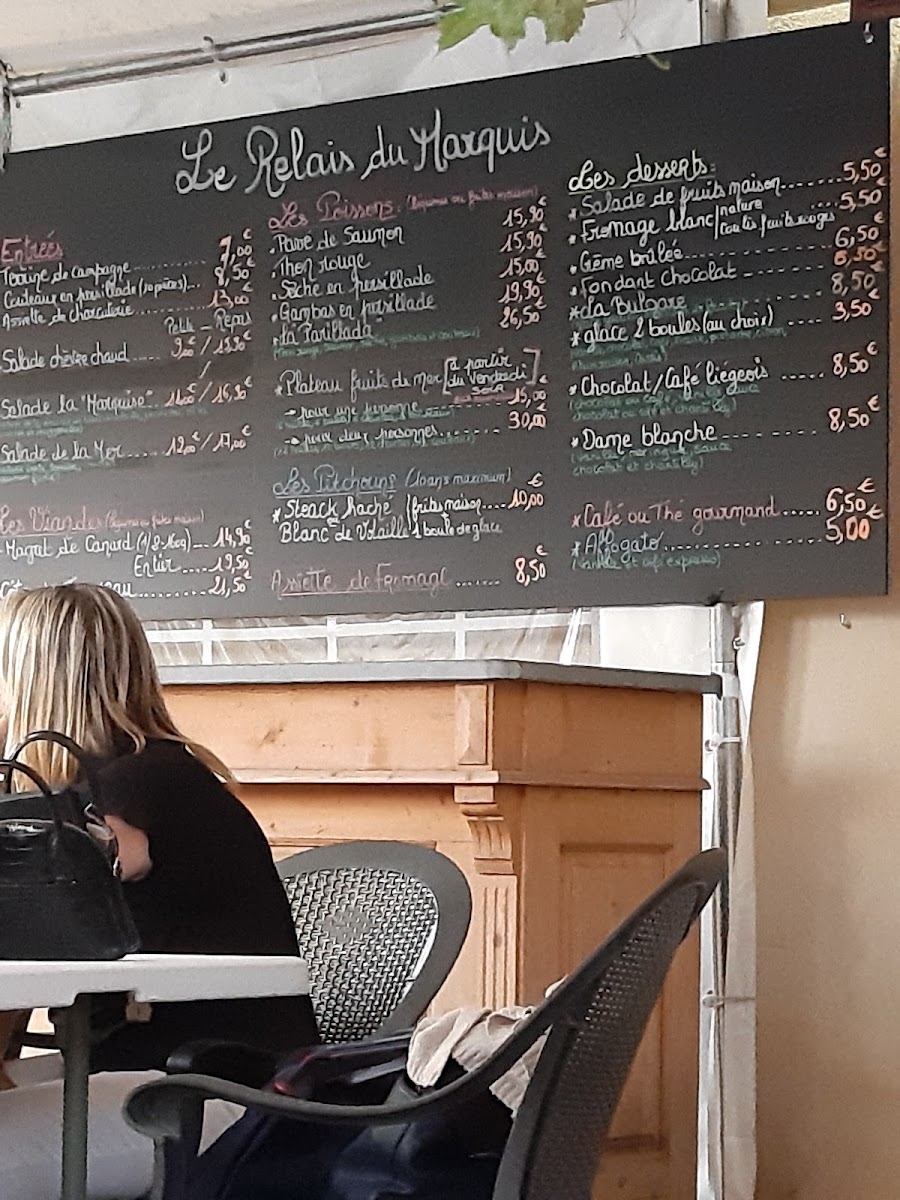 Le Relais du Marquis
Entrées
Terrine de campagne ........ 7,00€
Couteaux en persillade (10 pièces)... 8,50€
Assiette de charcuterie ........ 13,00€
Petite - Repas
Salade chèvre chaud ..... 9,00€ / 13,90€
Salade la "Marquise" .. 11,00€ / 16,90€
Salade de la Mer ....... 12,00€ / 17,00€
Les Viandes (légumes ou frites maison)
Magret de Canard (1/2-160g) ... 14,90€
Entier .... 19,50€
........ 21,50€
Les Poissons: (légumes ou frites maison)
Pavé de Saumon 15,90€
Thon rouge 15,90€
Sèche en persillade 15,00€
Gambas en persillade 19,90€
"La Parillada" 26,50€
*Plateau fruits de mer [à partir
du Vendredi
Soir]
→ pour une personne ........ 15,00€
→ pour deux personnes ........ 30,00€
Les Pitchouns (10 ans maximum) €
*Steack haché (frites maison.... 10,00
Blanc de Volaille 1 boule de glace
Assiette de Fromage ....... 8,50€
Les desserts:
*Salade de fruits maison........ 5,50€
*Fromage blanc/nature .... 5,50€
/Coulis fruits rouges
*Crème brûlée ............ 6,50€
*fondant Chocolat ---------- 6,50€
*La Bulgare ............ 8,50€
*glace 2 boules (au choix) .... 3,50€
*Chocolat/Café liégeois ..... 8,50€
*Dame blanche ............ 8,50€
chocolat et chantilly)
*Café ou Thé gourmand..... 6,50€
*Affogato.................... 5,00€
(vanille et café espresso)